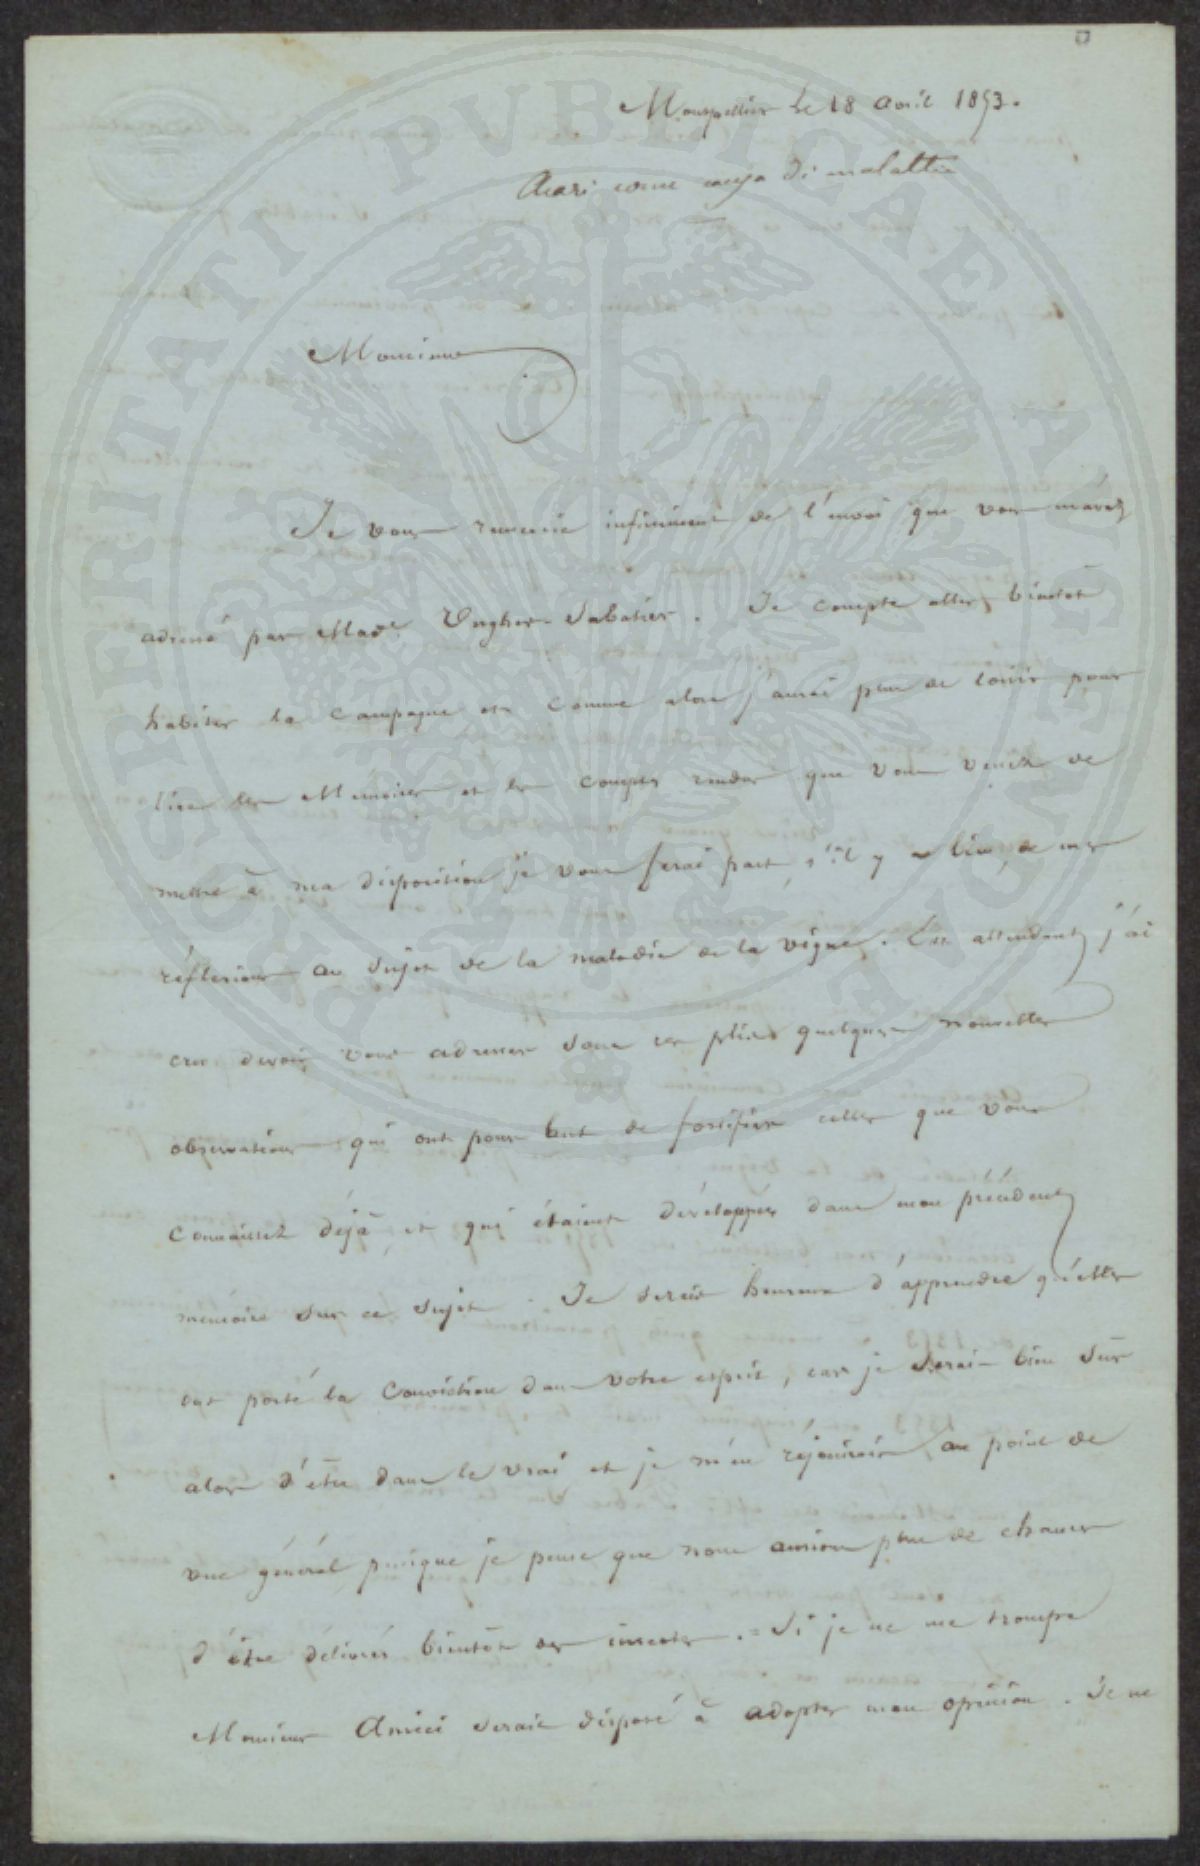 Montpellier le 18 avril 1853.
Acari come causa di malattia
Monsieur
Je vous remercie infiniment de l'envoi que vous m'avez
adressé par Made. Ungher-Sabatier. Je compte aller bientôt
habiter la Campagne et comme alors j'aurai plus de loisir pour
lire les Mémoires et les Comptes rendus que vous venez de
mettre à ma disposition je vous ferai part s'il y a lieu de mes
réflexions au sujet de la maladie de la vigne. En attendant j'ai
cru devoir vous adresser sous ce plis quelques nouvelles
observations qui ont pour but de fortifier celles que vous
connaissez déjà et qui étaient dévéloppées dans mon précédent
mémoire sur ce sujet. Je serais heureux d'apprendre qu'elles
ont porté la Conviction dans votre esprit, car je serais bien sûr
alors d'être dans le vrai et je m'en réjouirais au point de
vue général puisque je pense que nous aurions plus de chances
d'être délivrés bientôt des insectes. = Si je ne me trompe
Monsieur Amici serait disposé à adopter mon opinion. Je ne
PROSPERITATI PUBLICAE AUGENDAE